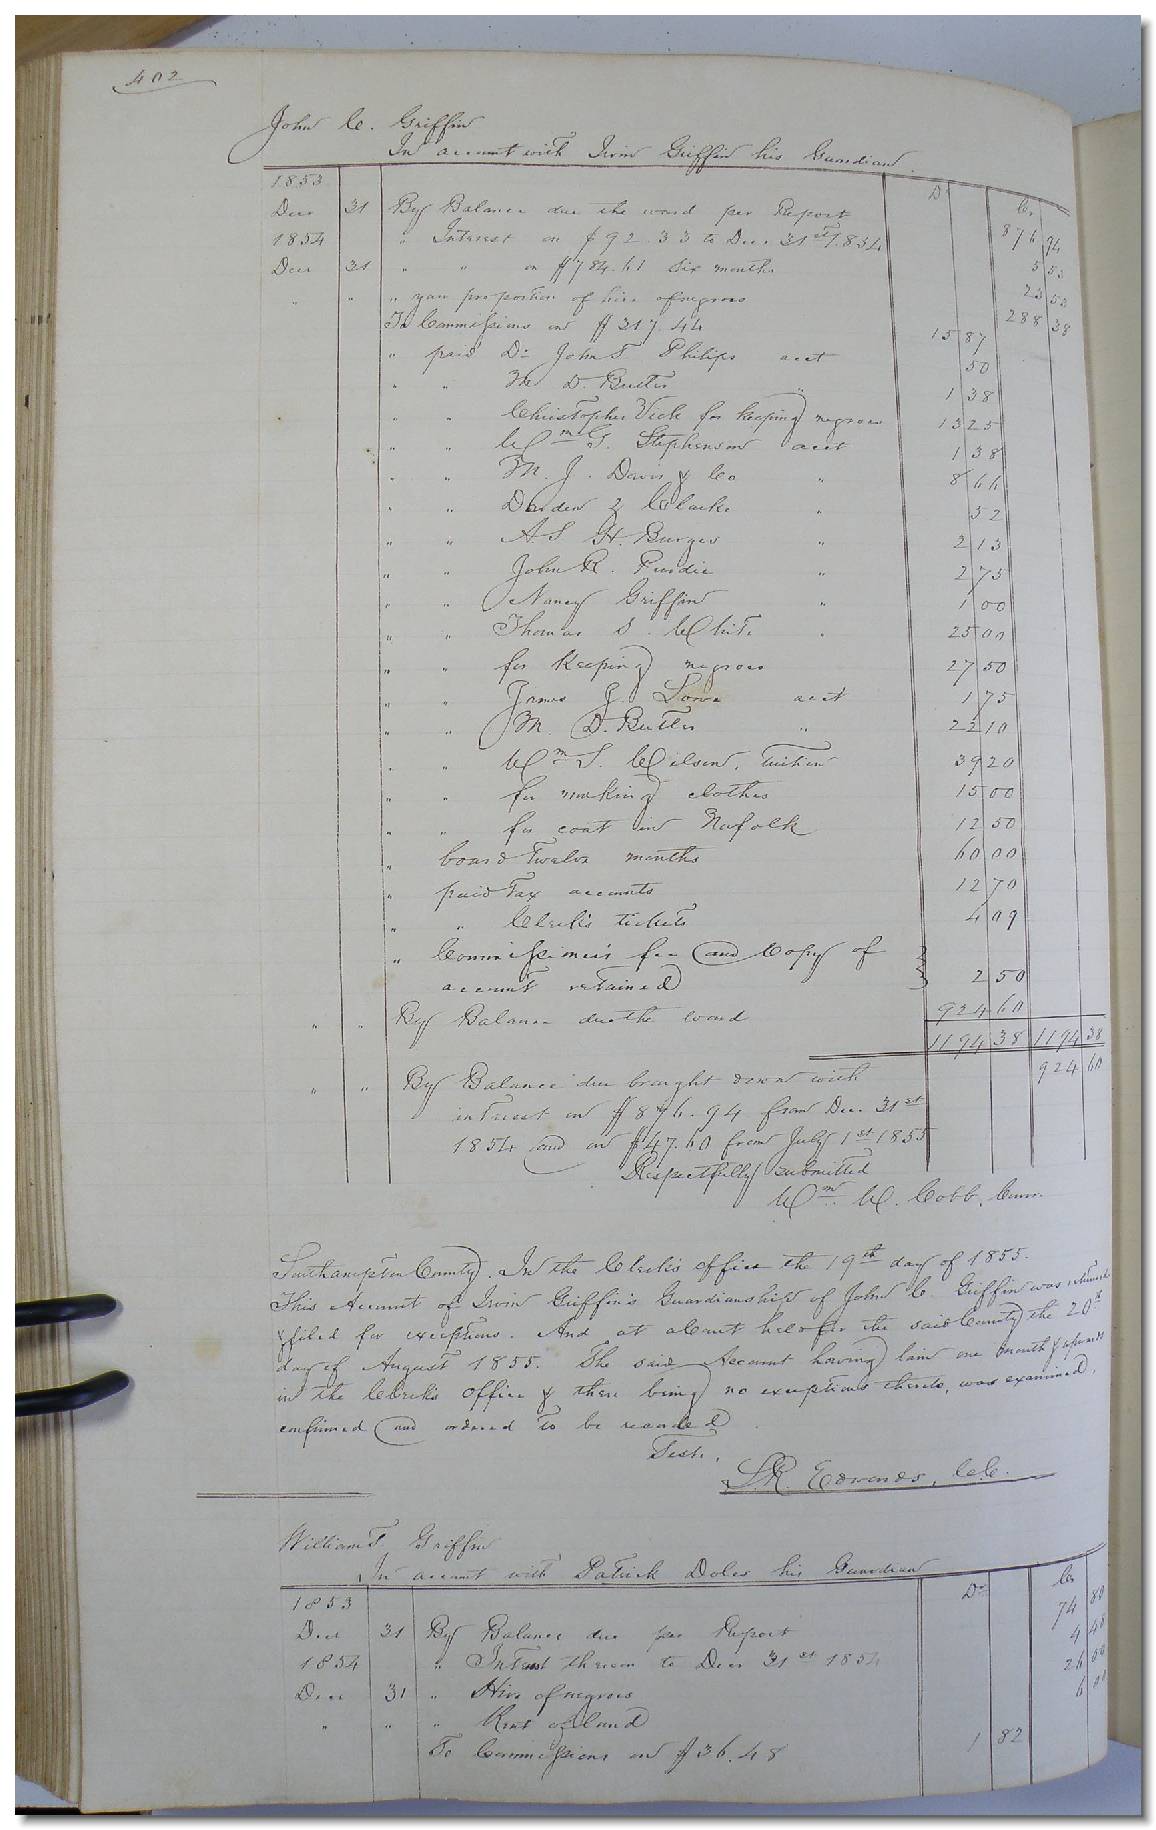 402
John C. Griffin
In account with Irvin Griffin his Guardian
Dr Cr
1853
Decr 31 By Balance due the ward per Report 876 94
1854 " Interest on $92.33 to Dec. 31st 1854 5 53
Decr 31 " " on $784.61 six months 23 53
" " " your proportion of hire of negroes 288 38
To Commissions on $317.44 15 87
" paid Dr John T Philips acct 50
" " M. D. Butts " 1 38
" " Christopher Vick for keeping negroes 13 25
" " Wm G. Stephenson acct 1 38
" " M. J. Davis & Co " 8 66
" " Darden & Clarke " 52
" " A S H. Burges " 2 13
" " John R. Purdie " 2 75
" " Nancy Griffin " 1 00
" " Thomas S. White " 25 00
" " for keeping negroes 27 50
" " James J. Lowe acct 1 75
" " M. D. Butts " 22 10
" " Wm S. Wilson, tuition 39 20
" " for making clothes 15 00
" " for coat in Norfolk 12 50
" board Twelve months 60 00
" paid Tax accounts 12 70
" " Clerk's tickets 4 09
" Commissioner's fee and Copy of
account retained 2 50
" " By Balance due the ward 924 60
1194 38 1194 38
" " By Balance due brought down with 924 60
interest on $876.94 from Dec. 31st
1854 and on $47.60 from July 1st 1855
Respectfully submitted
Wm W. Cobb, Com.
Southampton County. In the Clerk's office the 19th day of 1855.
This Account of Irvin Griffin's Guardianship of John C. Griffin was returned
& filed for exceptions. And at a Court held for the said County the 20th
day of August 1855. The said Account having lain one month & upwards
in the Clerk's office & there being no exceptions thereto, was examined,
confirmed and ordered to be recorded
Teste,
L.R. Edwards, C.C.
William T. Griffin
In account with Patrick Doles his Guardian
Dr Cr
1853
Decr 31 By Balance due per Report 74 80
1854 " Interest thereon to Decr 31st 1854 4 48
Decr 31 " Hire of negroes 26 00
" " " Rent of land 6 00
To Commissions on $36.48 1 82